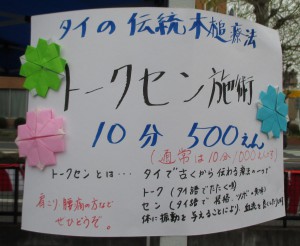 タイの伝統木槌療法
トークセン施術
10分 500えん
(通常は10分1000えんです)
トークセンとは… タイで古くから伝わる療法の一つ
トーク(タイ語でたたく時)
セン(タイ語で
体に振動を与えることにより、血流を良くし
肩こり 腰痛の方など
ぜひどうぞ。